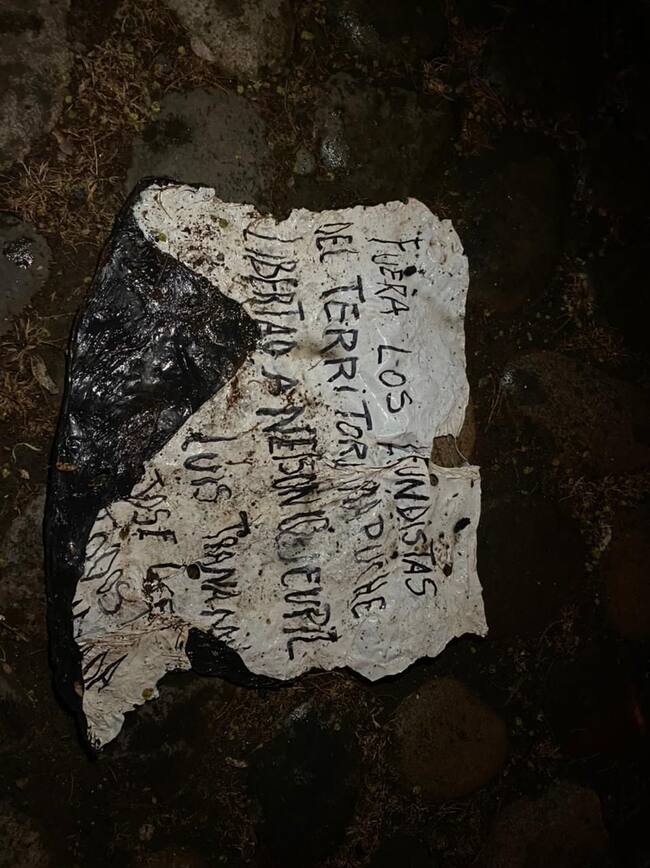 FUERA LOS FUNDISTAS
DEL TERRITORIO MAPUCHE
LIBERTAD A NELSON QUEUPIL
LUIS TRANAM
JOSE